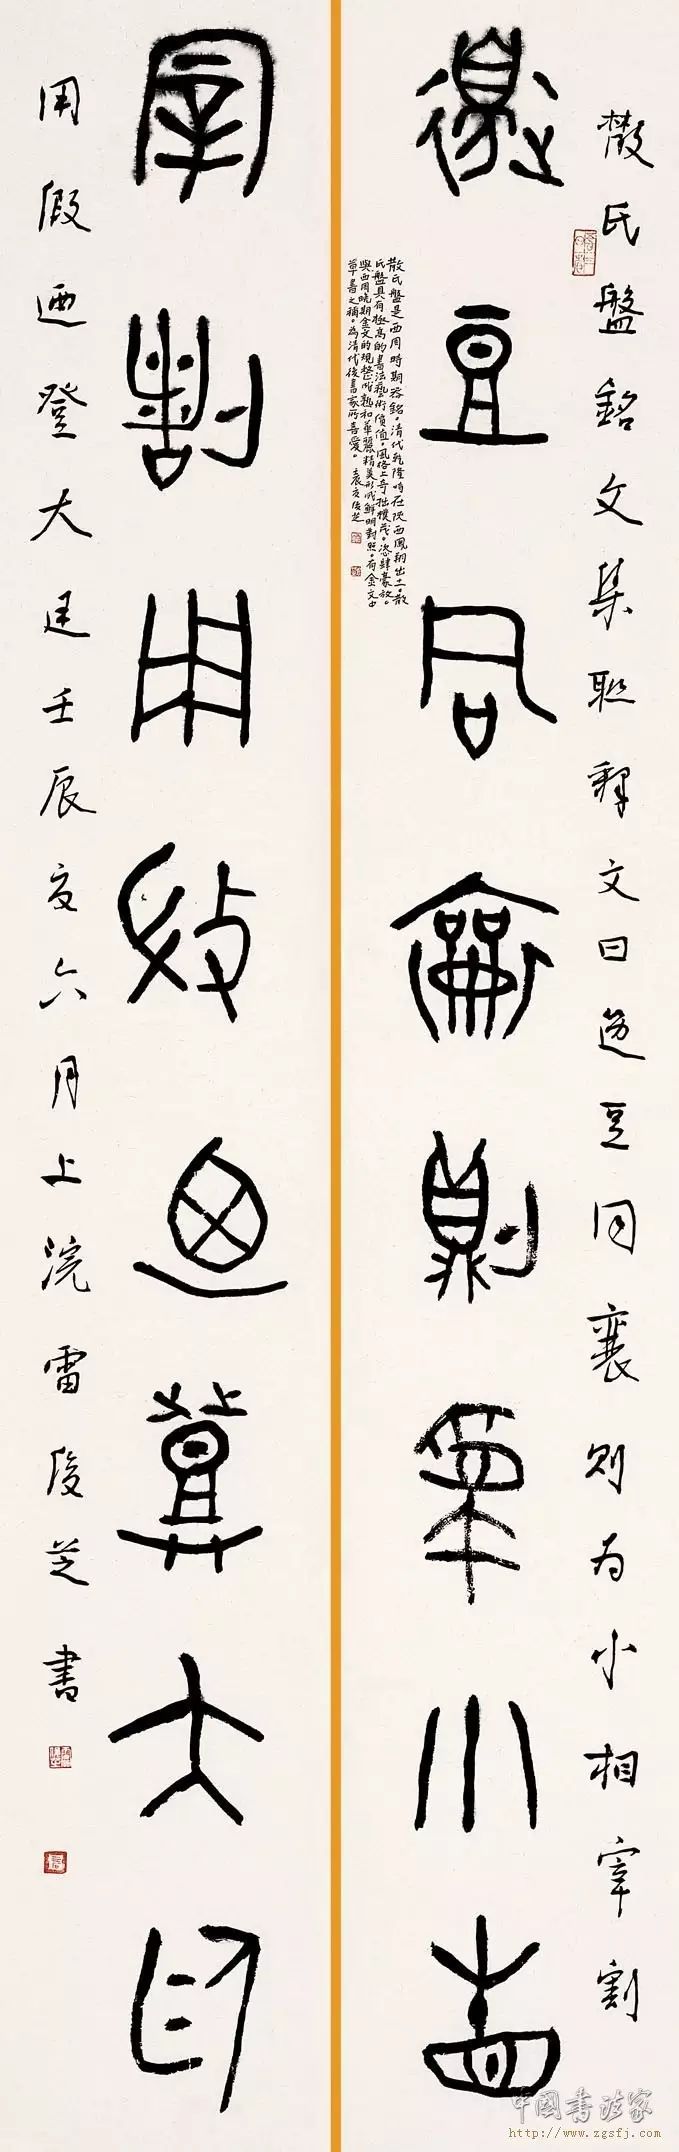 散氏盤銘文集聯釋文曰邊豆同襄則为小相宰割
邊豆同龠則為小相
散氏盤是西周時期器銘。清代乾隆時在陝西鳳翔出土。散
氏盤具有極高的書法藝術價值，風格上奇拙樸茂。恣肆豪放。
與西周晚期金文的規整成熟和華麗精美形成鮮明對照。有金文中
草書之稱。為清代後書家所喜愛。辰夏俊芝
宰割用假迺登大廷
用假迺登大廷壬辰夏六月上浣雷俊芝書
中國書法家
http://www.zgsfj.com